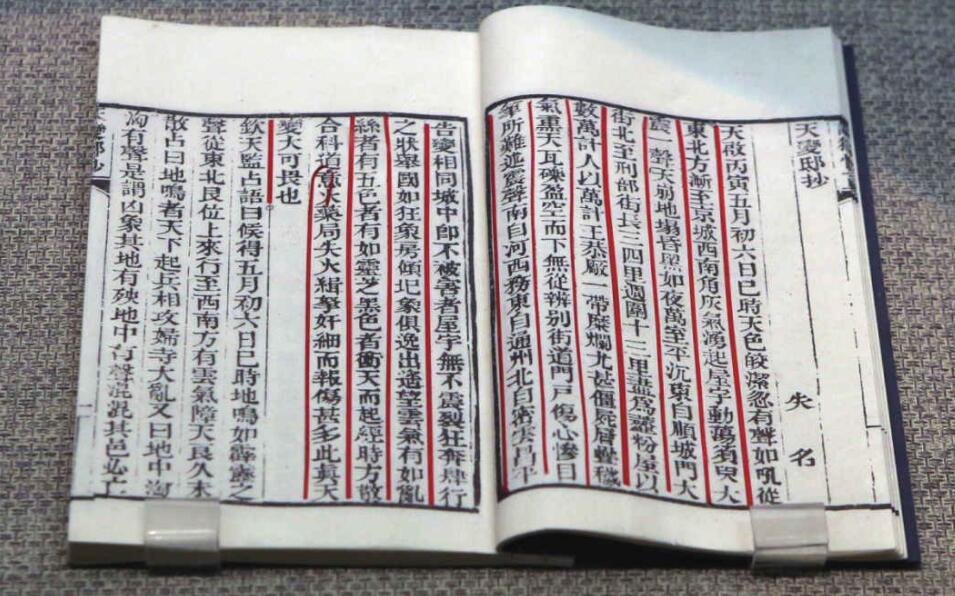 天變邸抄
失名
天啟丙寅五月初六日巳時天色皎潔忽有聲如吼從
東北方漸至京城西南角灰氣湧起屋宇動蕩須臾大
震一聲天崩地塌昏黑如夜萬室平沉東自順城門大
街北至刑部街長三四里週圍十三里盡爲虀粉屋以
數萬計人以萬計王恭廠一帶糜爛尤甚僵屍層疊穢
氣熏天瓦礫盈空而下無從辨別街道門戶傷心慘目
筆所難述震聲南自河西務東自通州北自密雲昌平
告變相同城中卽不被害者屋宇無不震裂狂奔肆行
之狀舉國如狂象房傾圮象俱逸出遙望雲氣有如亂
絲者有五色者有如靈芝黑色者衝天而起經時方散
合科道意火藥局失火緝拏奸細而報傷甚多此眞天
變大可畏也
欽天監占語曰候得五月初六日巳時地鳴如霹靂之
聲從東北艮位上來行至西南方有雲氣障天良久未
散占曰地鳴者天下起兵相攻婦寺大亂又曰地中洶
洶有聲是謂凶象其地有殃地中有聲混混其邑必亡